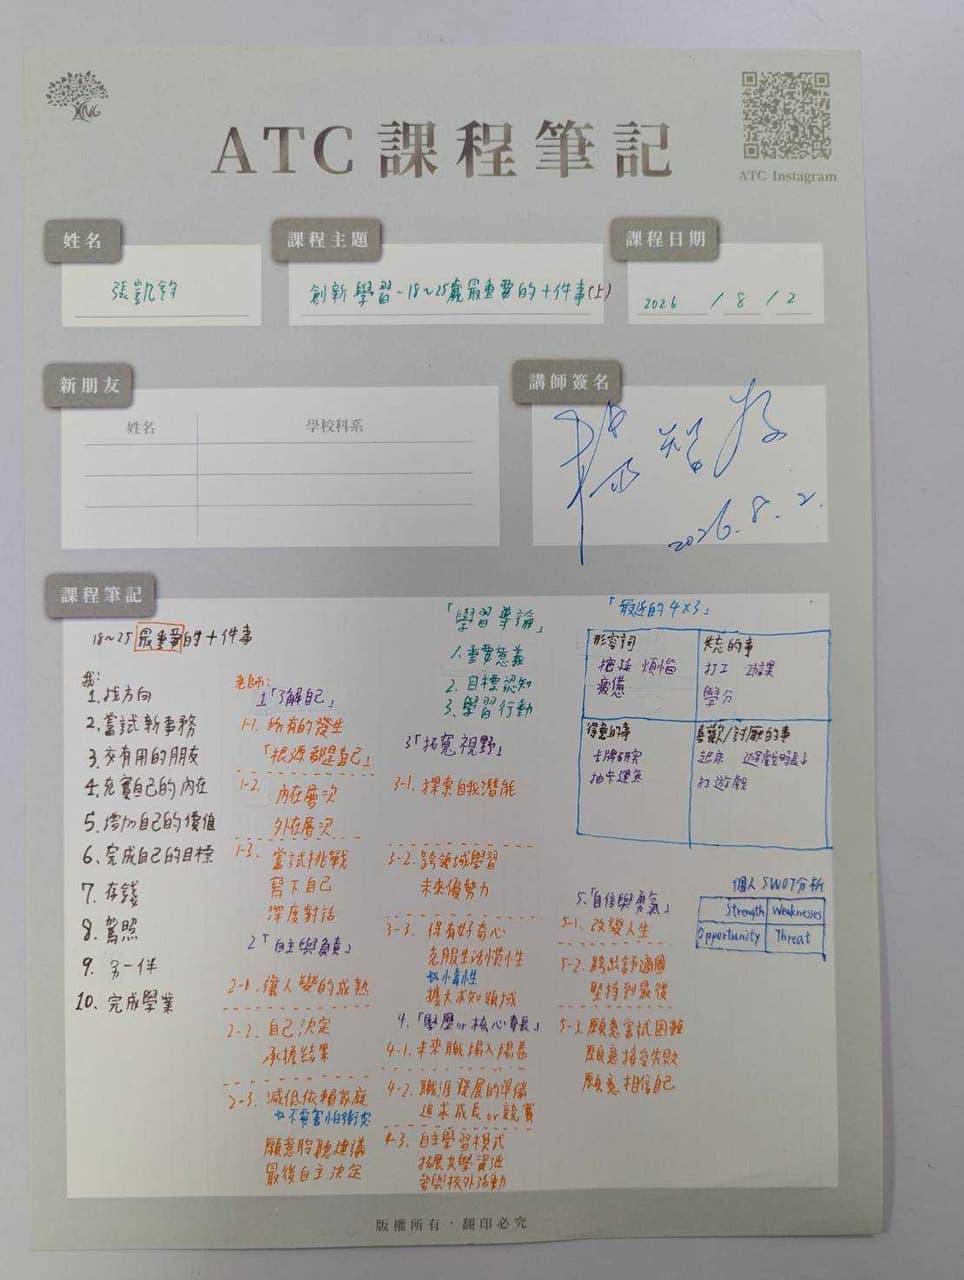 XNG
ATC 課程筆記
ATC Instagram
姓名
張凱鈞
課程主題
創新學習-18~25歲最重要的十件事(上)
課程日期
2026 / 8 / 2
新朋友
姓名
學校科系
講師簽名
2026.8.2.
課程筆記
18~25 最重要的十件事
我:
1.找方向
2.嘗試新事務
3.交有用的朋友
4.充實自己的內在
5.增加自己的價值
6.完成自己的目標
7.存錢
8.駕照
9.另一伴
10.完成學業
老師:
1「了解自己」
1-1. 所有的發生
「根源都是自己」
1-2. 內在層次
外在層次
1-3. 嘗試挑戰
寫下自己
深度對話
2「自主與負責」
2-1. 讓人變的成熟
2-2. 自己決定
承擔結果
2-3. 減低依賴家庭
不需害怕衝突
願意聆聽建議
最後自主決定
「學習導論」
1.重要意義
2.目標認知
3.學習行動
3「拓寬視野」
3-1. 探索自我潛能
3-2. 跨領域學習
未來優勢力
3-3. 保有好奇心
克服生活慣性
惰性
擴大求知領域
4.「學歷or核心專長」
4-1. 未來職場入場卷
4-2. 職涯發展的準備
追求成長or競賽
4-3. 自主學習模式
拓展文學資源
參與校外活動
「最近的4x3」
形容詞
拖延 煩惱
疲憊
失志的事
打工 選課
學分
得意的事
卡牌研究
抽卡運氣
喜歡/討厭的事
起床
打遊戲
個人SWOT分析
Strength Weaknesses
Opportunity Threat
5.「自信與勇氣」
5-1. 改變人生
5-2. 跨出舒適圈
堅持到最後
5-3. 願意嘗試困難
願意接受失敗
願意相信自己
版權所有・翻印必究